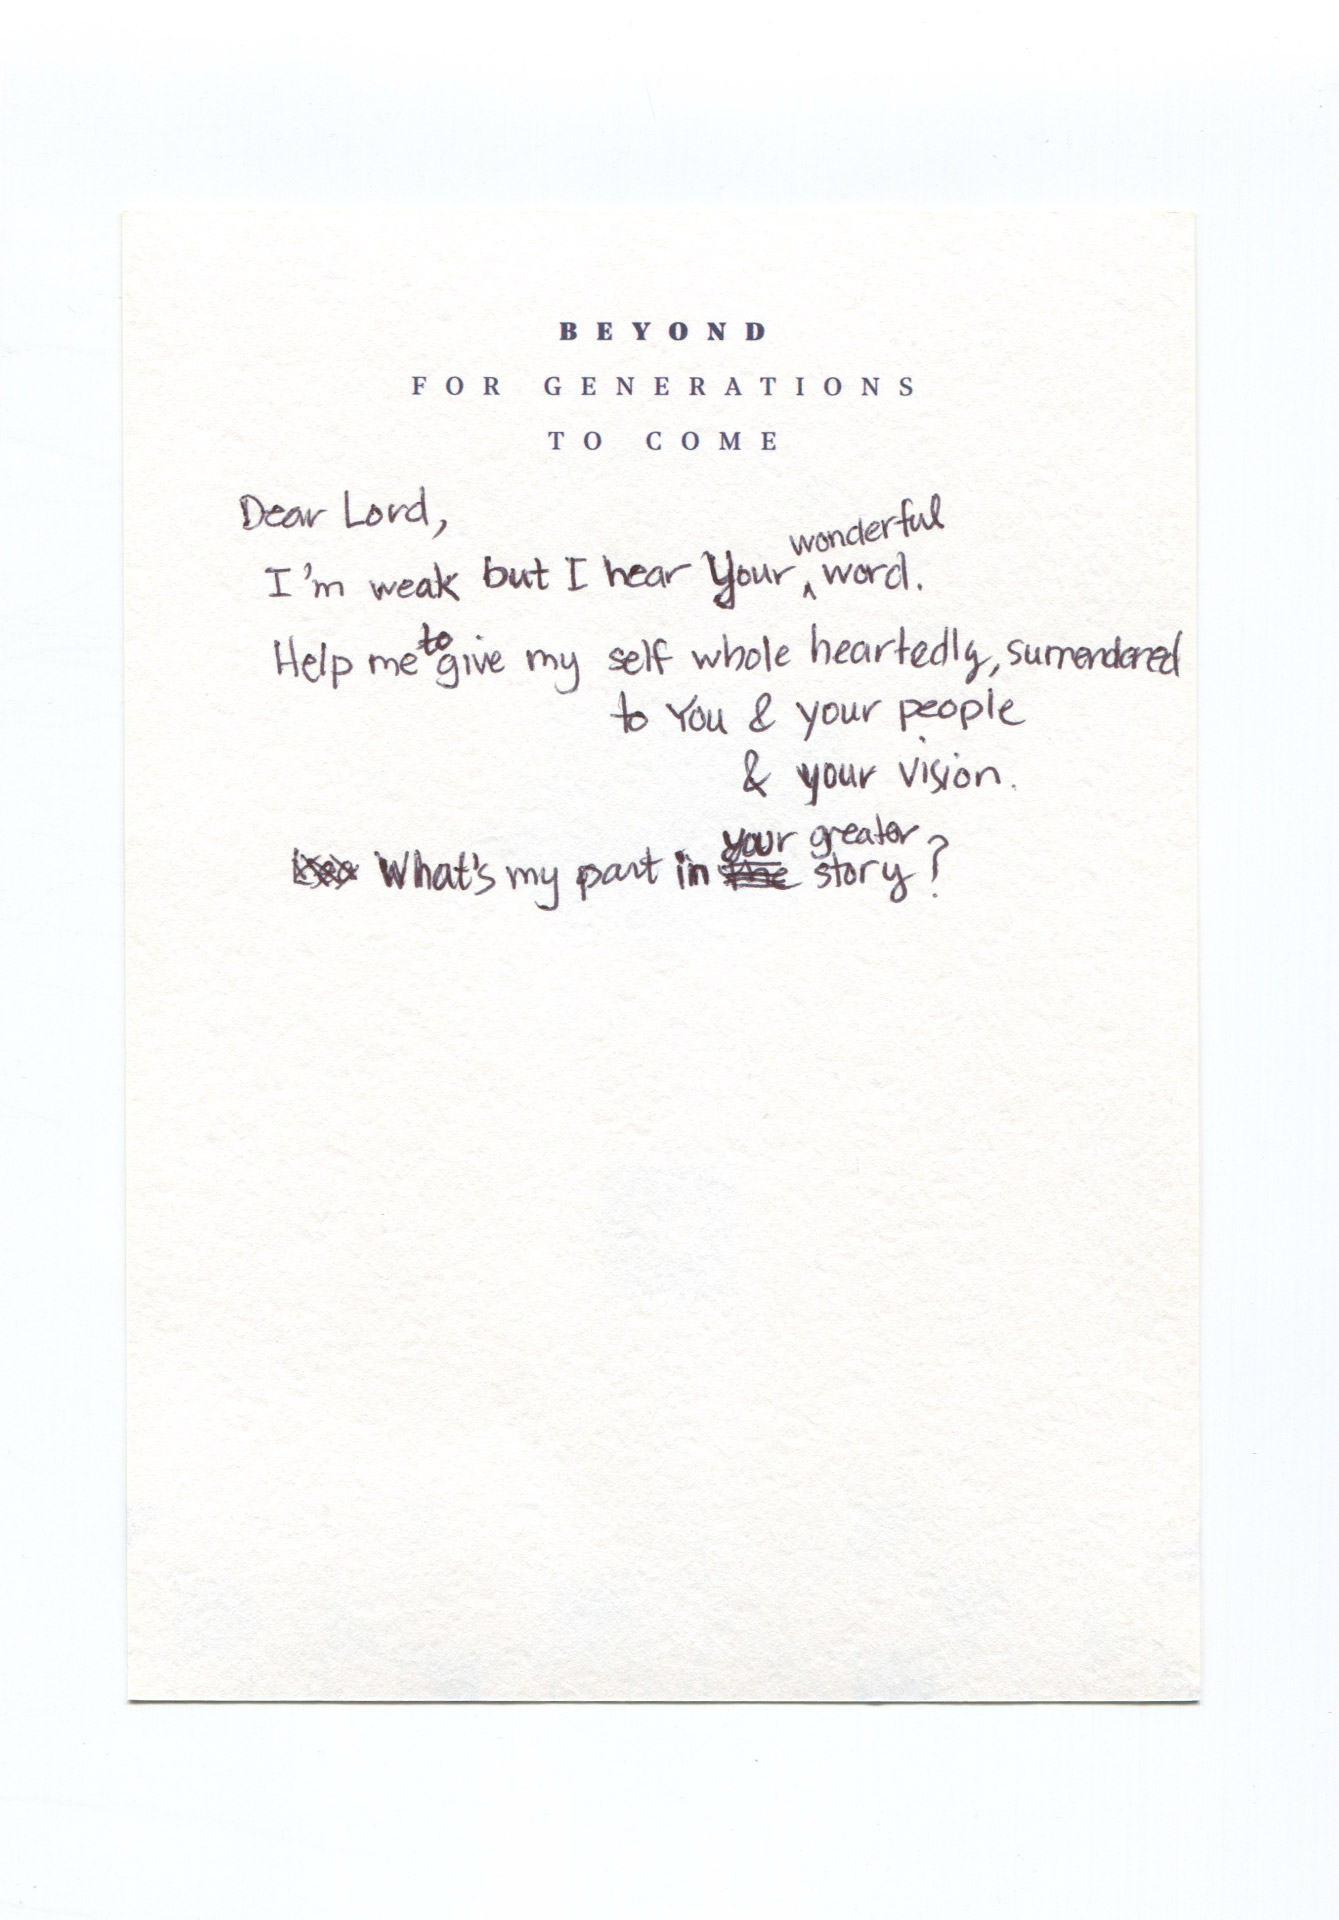 BEYOND
FOR GENERATIONS
TO COME
Dear Lord,
I'm weak but I hear Your wonderful word.
Help me to give my self whole heartedly, surrendered
to You & your people
& your vision.
What's my part in your greater story?